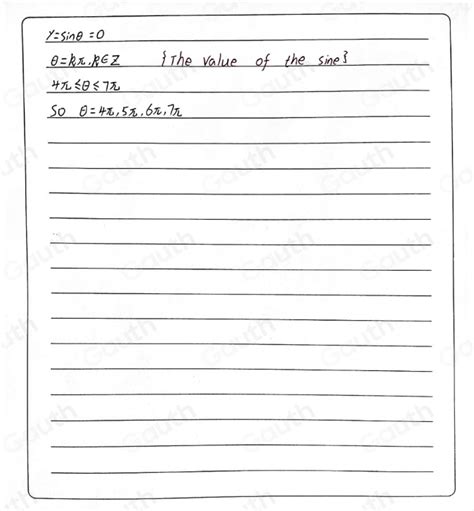 y=sinθ=0
θ=kπ,k∈Z {The value of the sine}
4π≤θ≤7π
So θ=4π,5π,6π,7π